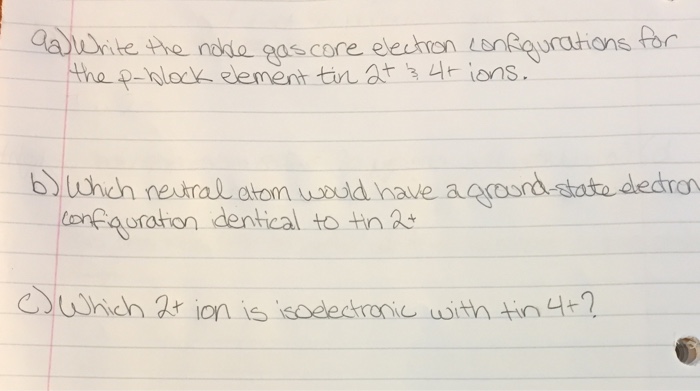 9a) Write the noble gas core electron configurations for
the p-block element tin 2+ & 4+ ions.
b) Which neutral atom would have a ground-state electron
configuration identical to tin 2+
c) Which 2+ ion is isoelectronic with tin 4+?